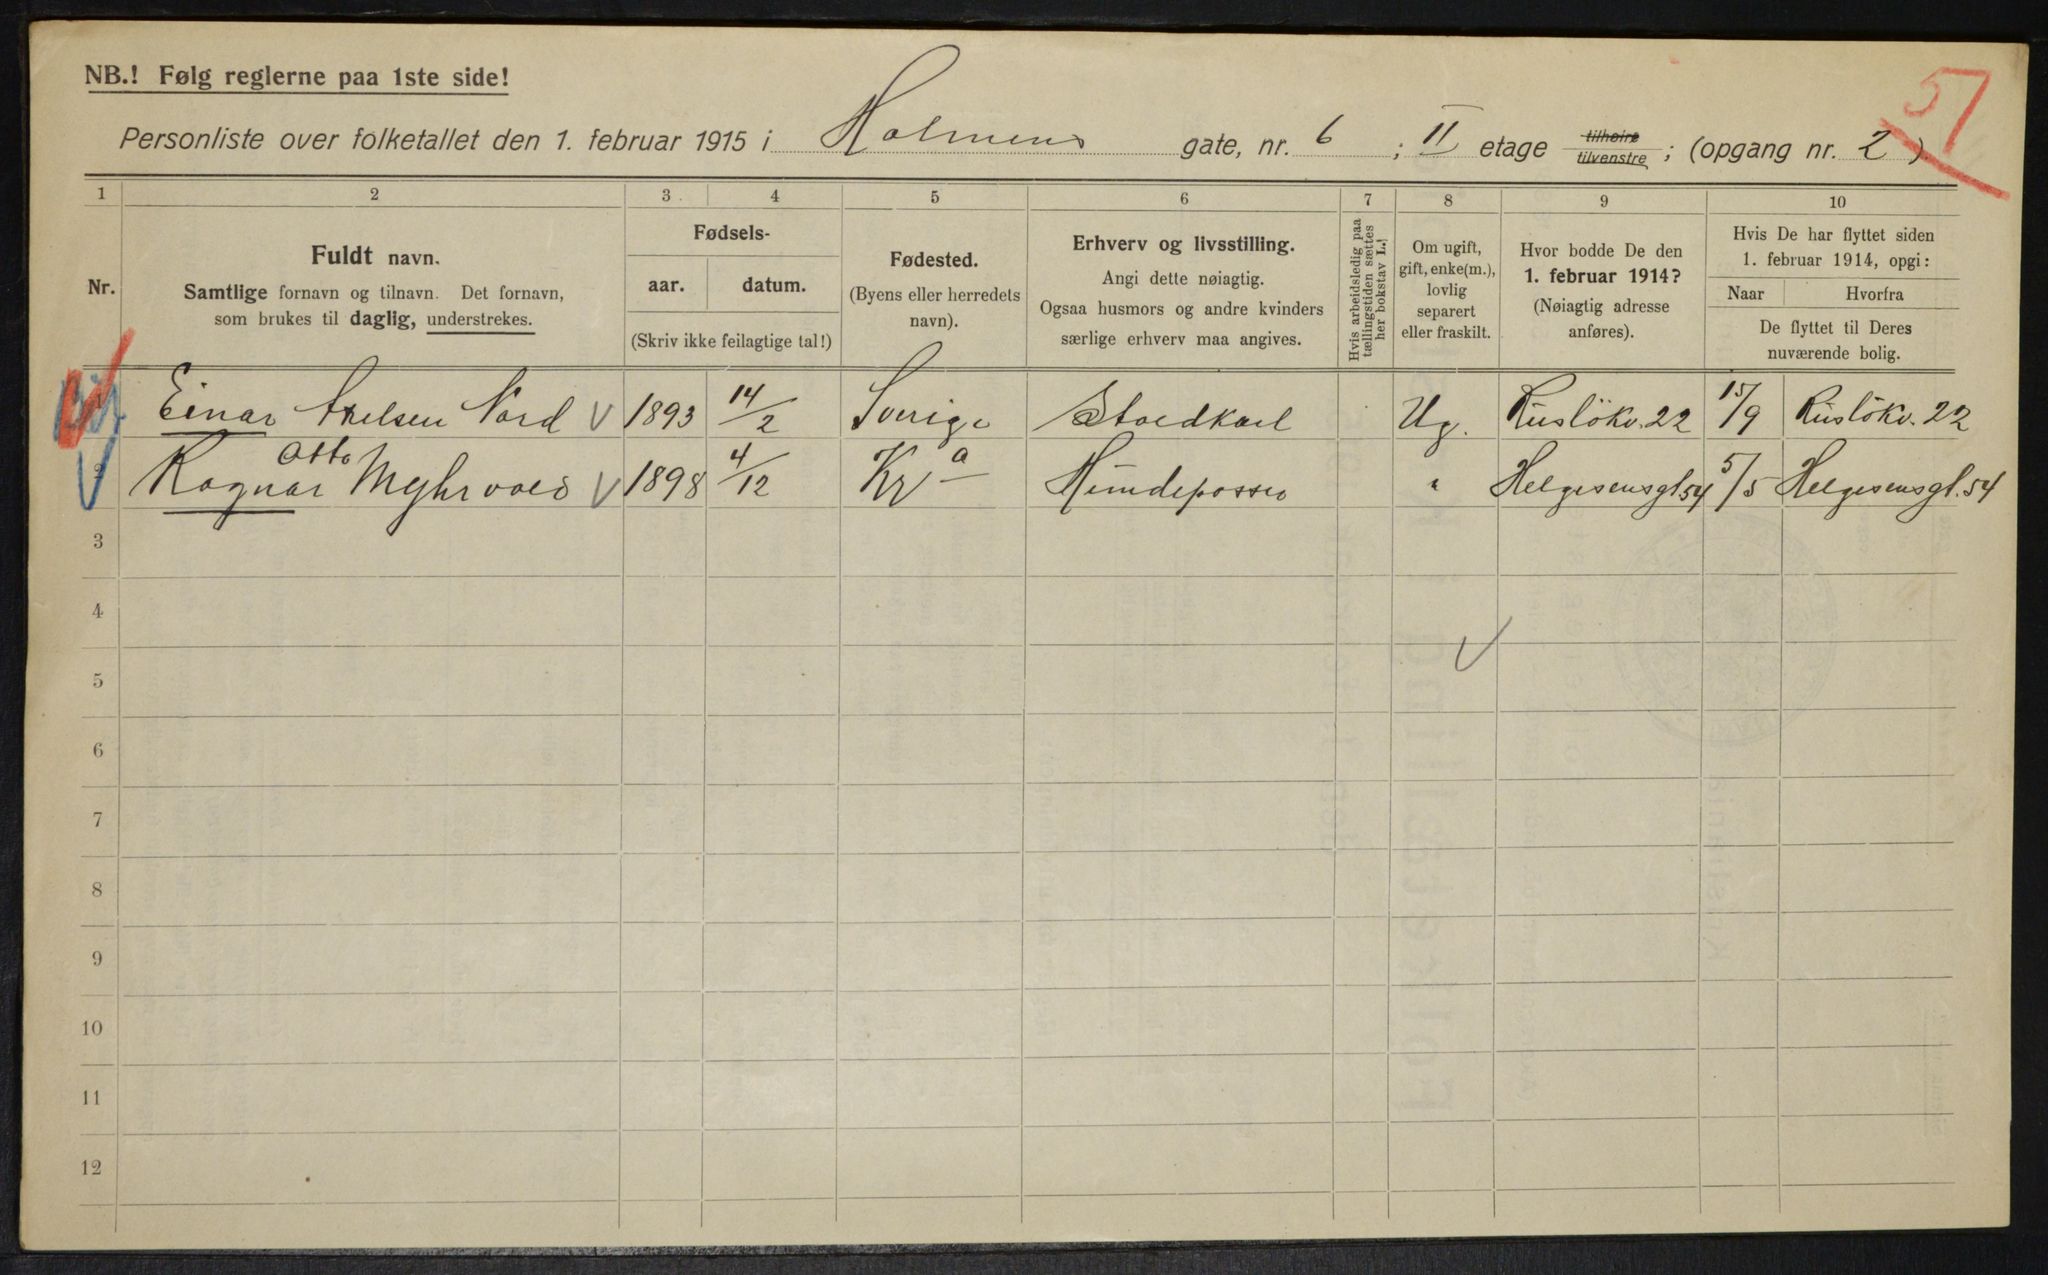 57
NB.! Følg reglerne paa 1ste side!
Personliste over folketallet den 1. februar 1915 i Holmens gate, nr. 6 ; II etage tilhøire tilvenstre ; (opgang nr. 2 ).
1 2 3 4 5 6 7 8 9 10
Nr.
Fuldt navn.
Samtlige fornavn og tilnavn. Det fornavn,
som brukes til daglig, understrekes.
Fødsels-
aar. datum.
(Skriv ikke feilagtige tal!)
Fødested.
(Byens eller herredets
navn).
Erhverv og livsstilling.
Angi dette nøiagtig.
Ogsaa husmors og andre kvinders
særlige erhverv maa angives.
Hvis arbeidsledig paa
tællingstiden sættes
her bokstav L.!
Om ugift,
gift, enke(m.),
lovlig
separert
eller fraskilt.
Hvor bodde De den
1. februar 1914?
(Nøiagtig adresse
anføres).
Hvis De har flyttet siden
1. februar 1914, opgi:
Naar Hvorfra
De flyttet til Deres
nuværende bolig.
1 Einar Axelsen Nord 1893 14/2 Sverige Staldkarl Ug. Rusløkv. 22 15/9 Rusløkv. 22
2 Ragnar Otto Myhrvold 1898 4/12 Kra Hundepasser " Helgesensgt 54 5/5 Helgesensgt. 54
3
4
5
6
7
8
9
10
11
12